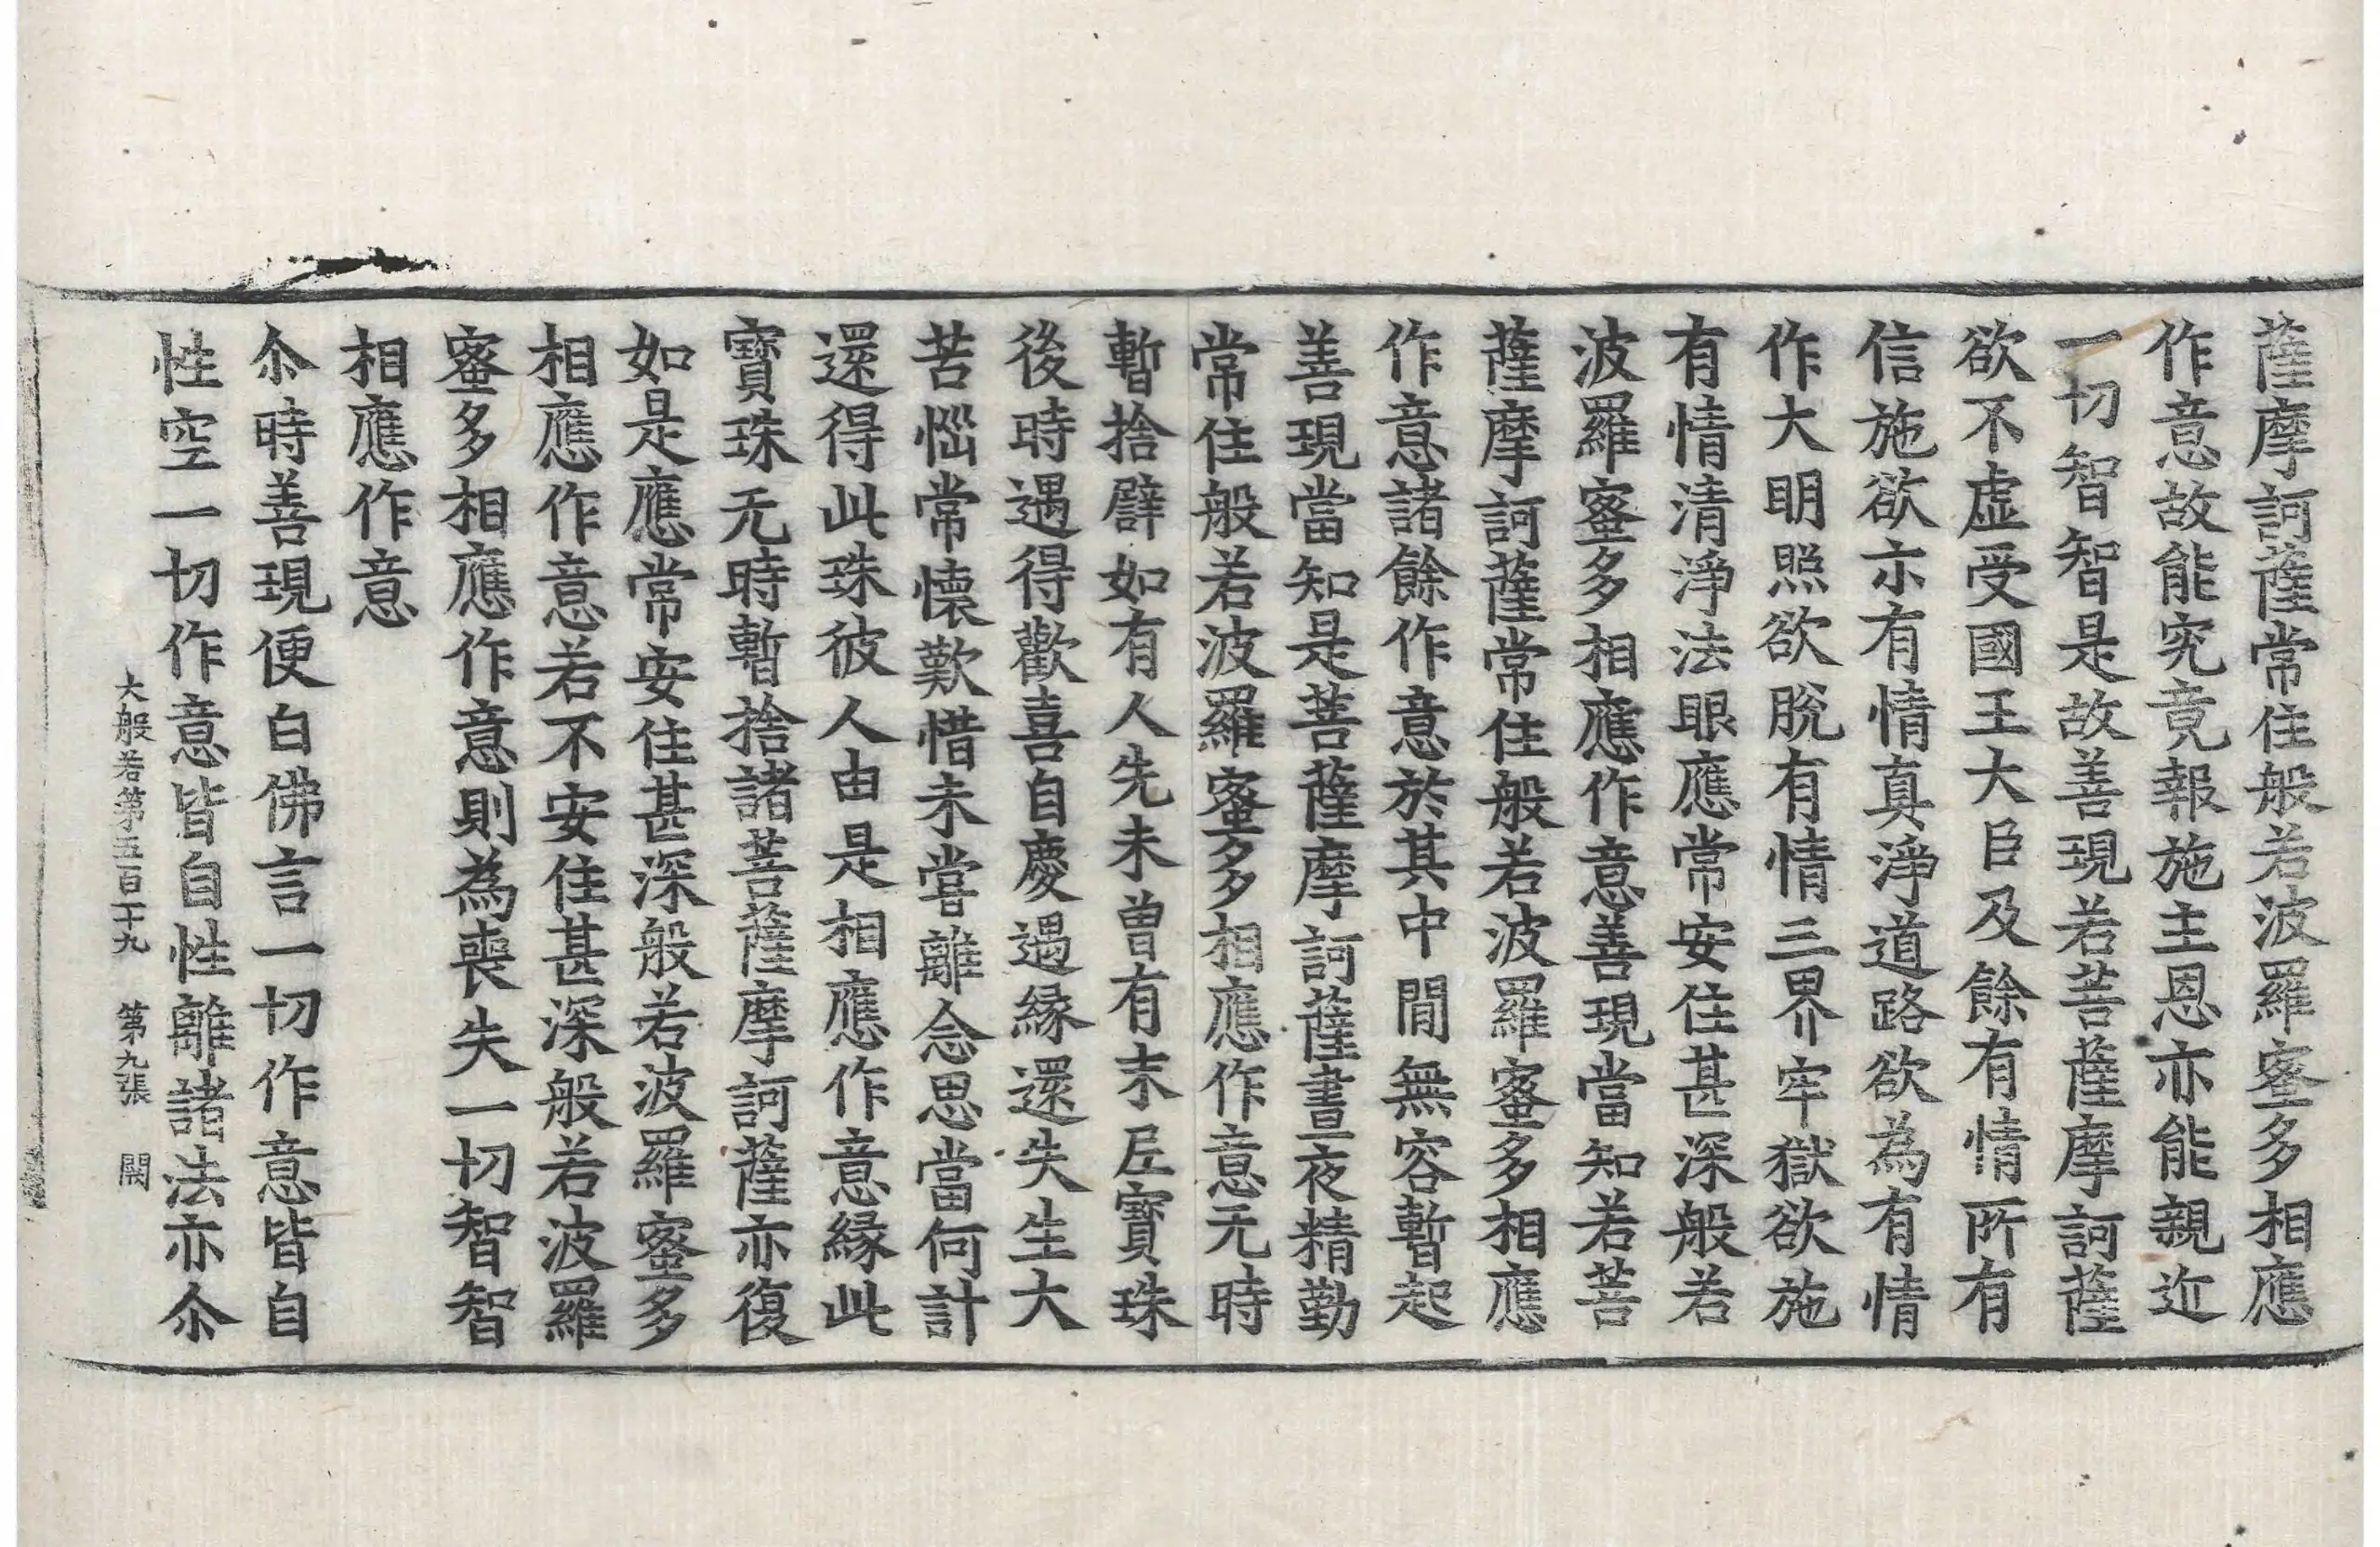 薩摩訶薩常住般若波羅蜜多相應
作意故能究竟報施主恩亦能親近
一切智智是故善現若菩薩摩訶薩
欲不虛受國王大臣及餘有情所有
信施欲示有情真淨道路欲為有情
作大明照欲脫有情三界牢獄欲施
有情清淨法眼應常安住甚深般若
波羅蜜多相應作意善現當知若菩
薩摩訶薩常住般若波羅蜜多相應
作意諸餘作意於其中間無容暫起
善現當知是菩薩摩訶薩晝夜精勤
常住般若波羅蜜多相應作意无時
暫捨譬如有人先未曾有末尼寶珠
後時遇得歡喜自慶遇緣還失生大
苦惱常懷歎惜未嘗離念思當何計
還得此珠彼人由是相應作意緣此
寶珠无時暫捨諸菩薩摩訶薩亦復
如是應常安住甚深般若波羅蜜多
相應作意若不安住甚深般若波羅
蜜多相應作意則為喪失一切智智
相應作意
尒時善現便白佛言一切作意皆自
性空一切作意皆自性離諸法亦尒
大般若第五百卄九 第九張 闕